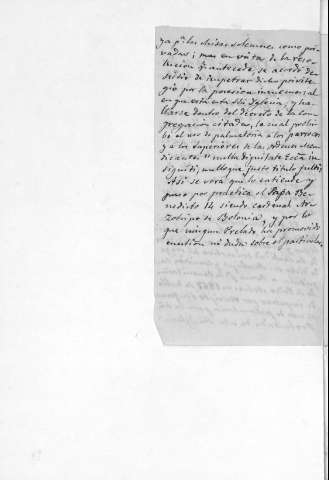 ya p.a las misas solemnes como pri-
vadas; mas en vista de la reso-
lucion q.e antecede, se acordó de-
sistir de impetrar dicho privile-
gio por la posesion inmemorial
en que está esta Sta Iglesia, y ha-
llarse dentro del decreto de la con-
gregacion citadas, la cual prohi-
be el uso de palmatoria à los parrocos
y à los superiores de las ordenes men-
dicantes "nulla dignitate Eccâ in-
signiti, nulloque justo titulo fulti,,
Asi se verá que lo entiende y
puso por practica el Papa Be-
nedicto 14 siendo cardenal Ar-
zobispo de Bolonia, y por lo
que ningun Prelado ha promovido
cuestion ni duda sobre el particular